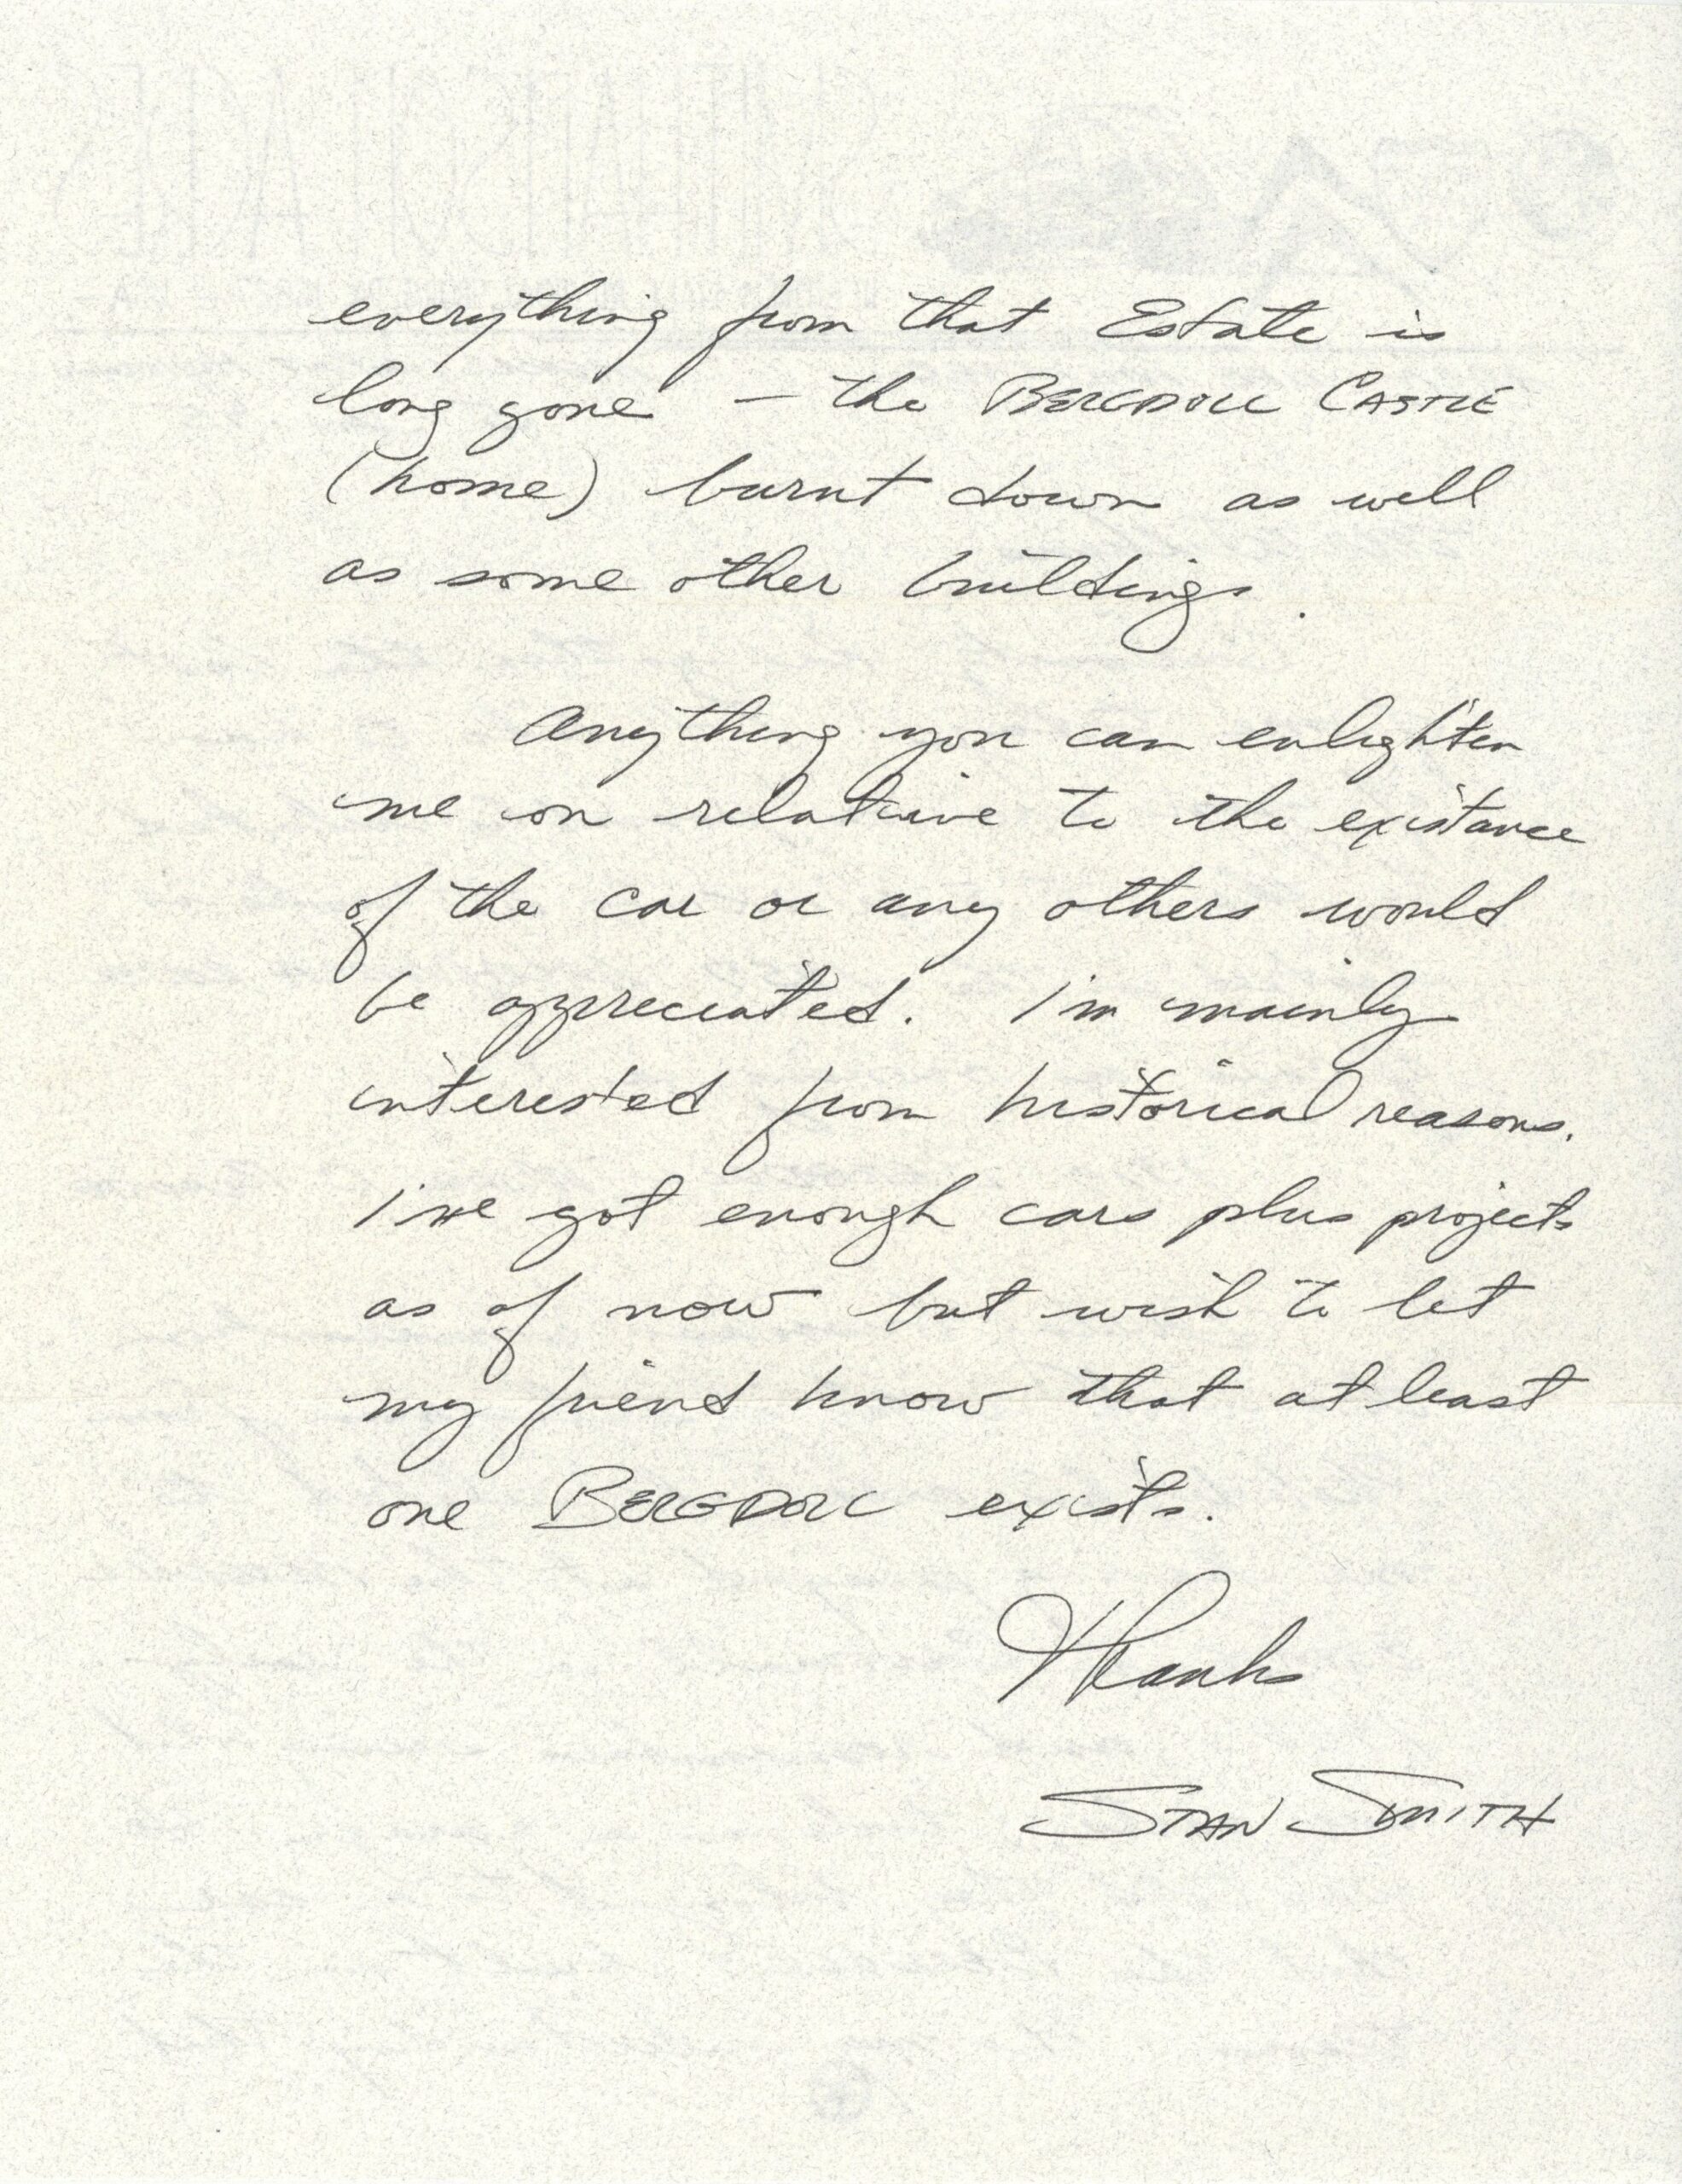 everything from that Estate is
long gone — the BERGDOLL CASTLE
(home) burnt down as well
as some other buildings.
Anything you can enlighten
me on relative to the existance
of the car or any others would
be appreciated. I'm mainly
interested from historical reasons.
I've got enough cars plus projects
as of now but wish to let
my friend know that at least
one BERGDOLL exists.
Thanks
STAN SMITH